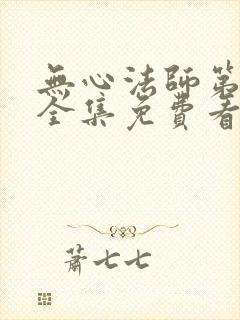 無心法師第
全集免費看
蕭七七